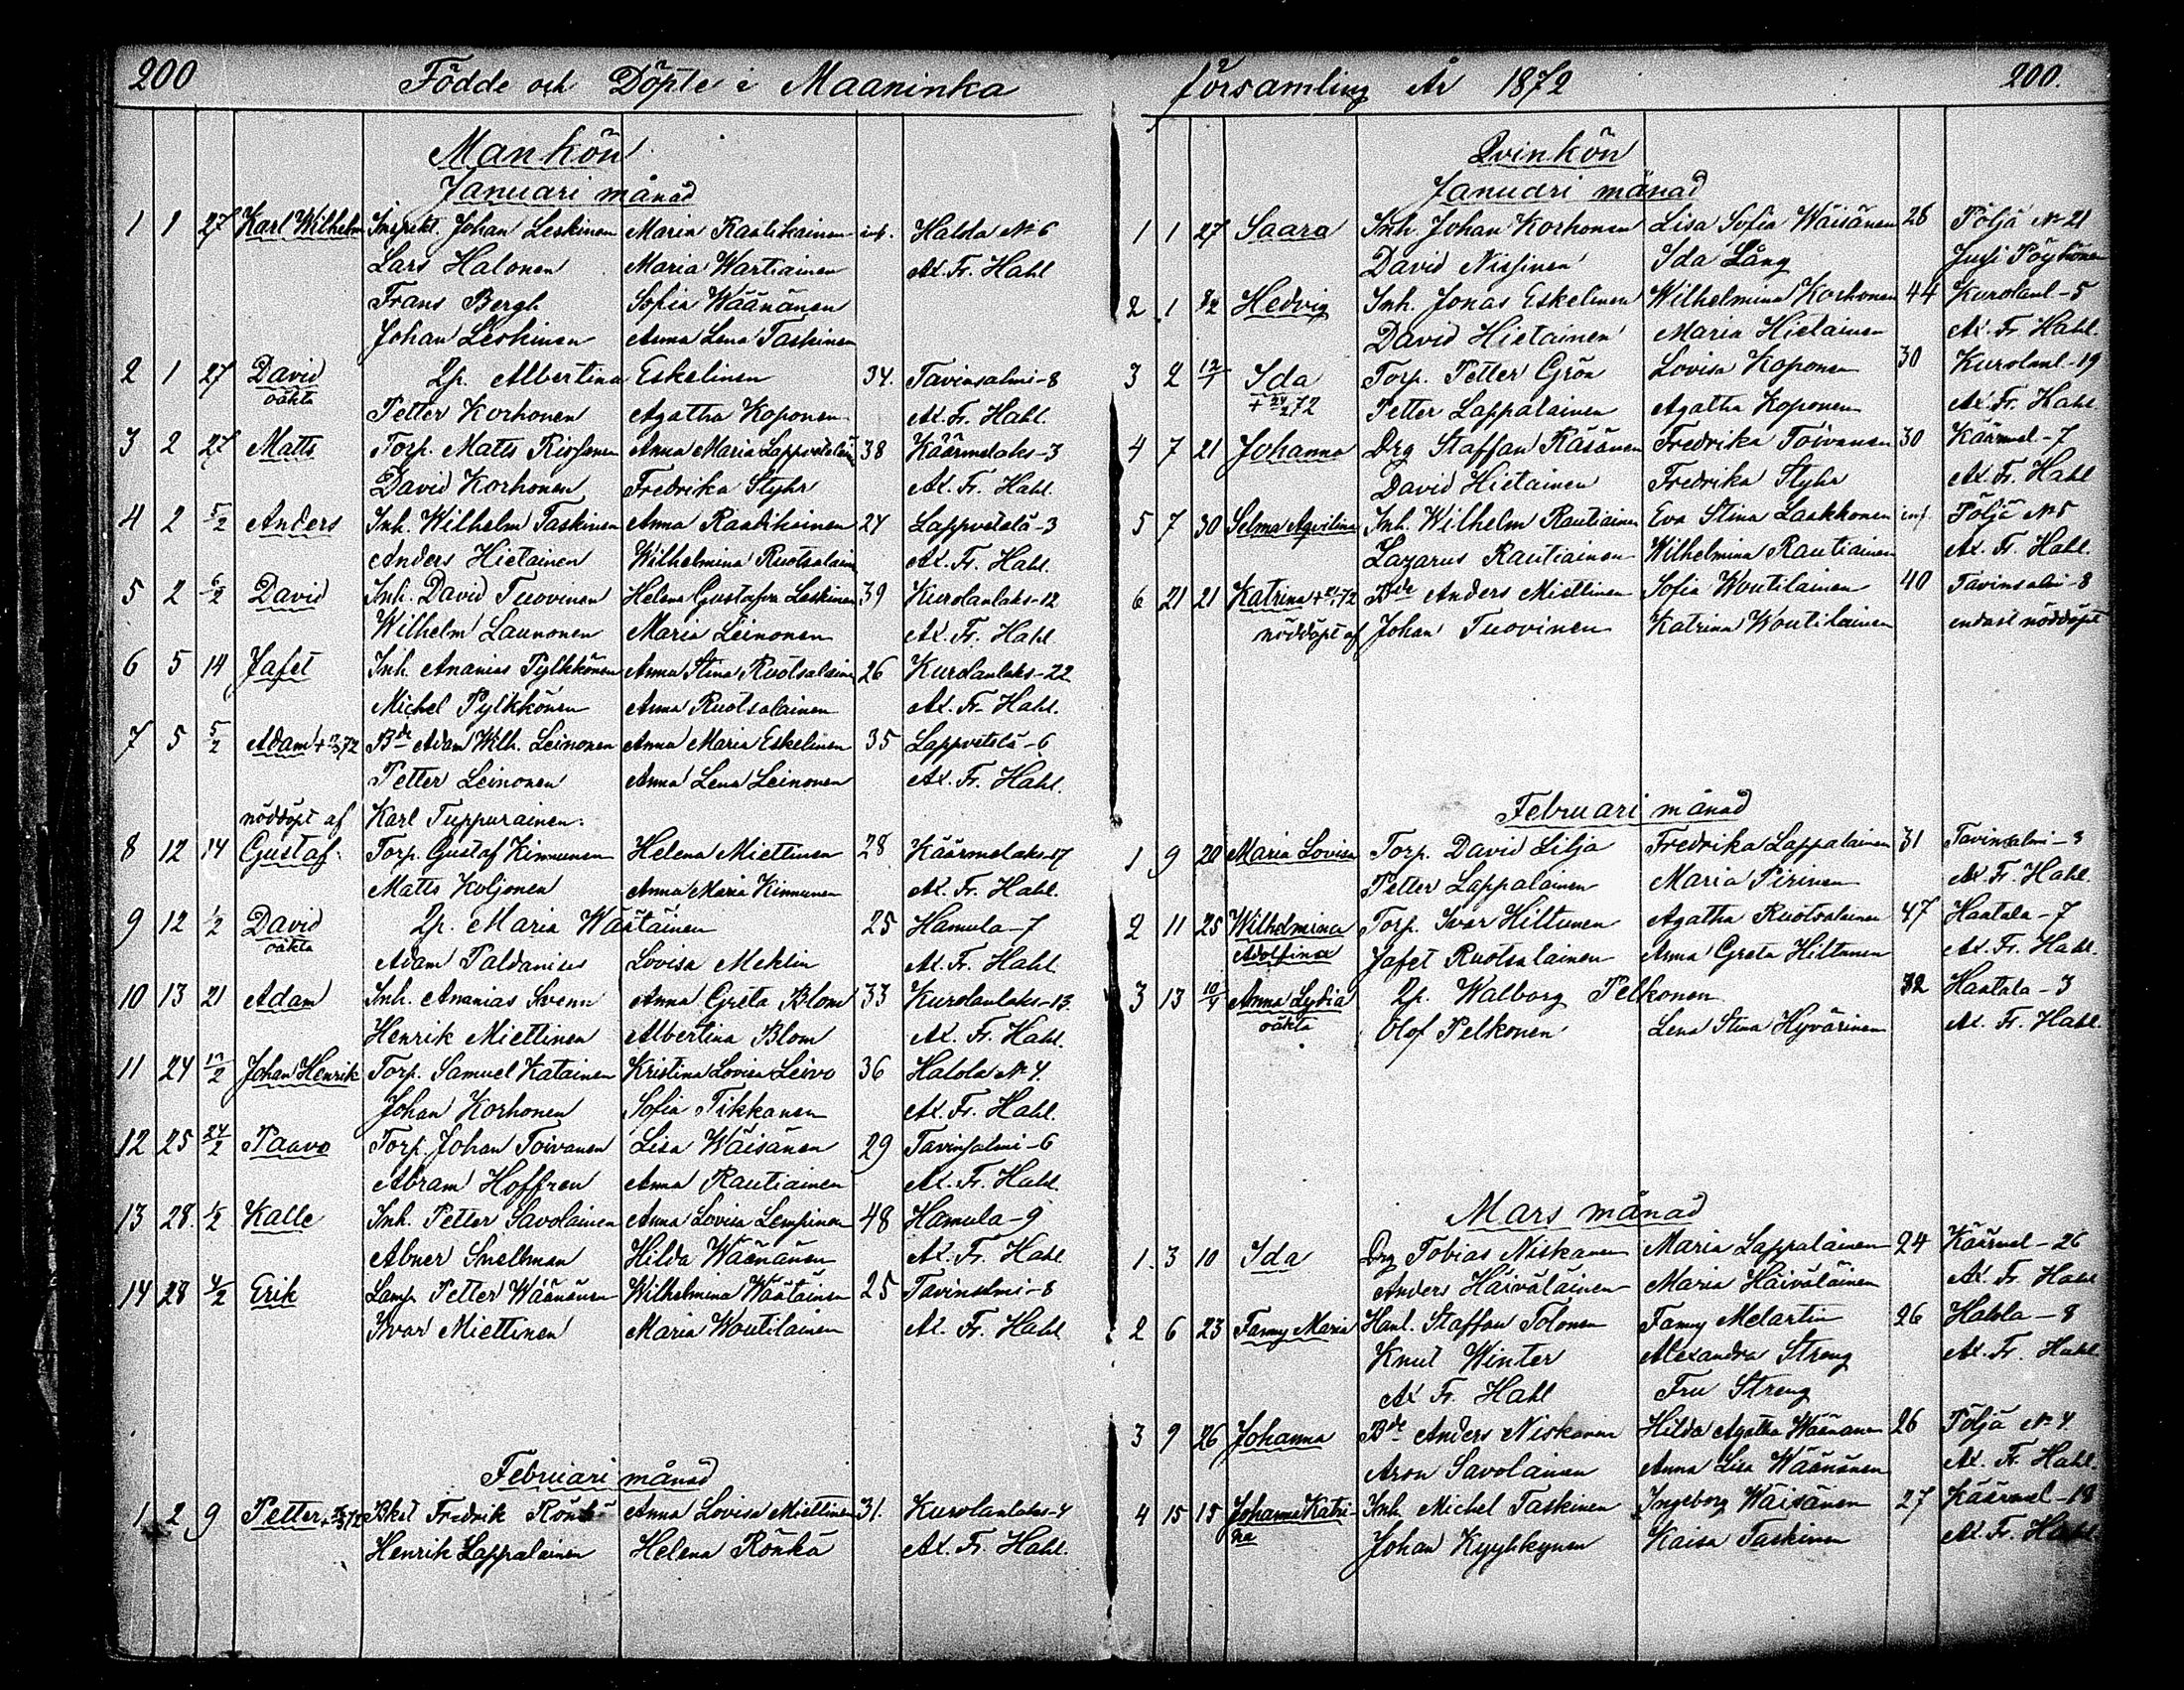 200 Födde och Döpte i Maaninka
Mankön
Januari månad
1 1 27 Karl Wilhelm Inspekt. Johan Leskinen Maria Raatikainen inf. Halola No 6
Lars Halonen Maria Wartiainen Ax. Fr. Hahl
Frans Bergh Sofia Wäänänen
Johan Leskinen Anna Lena Taskinen
2 1 27 David Qp. Albertina Eskelinen 34. Tavinsalmi-8
oäkta Petter Korhonen Agatha Koponen Ax. Fr. Hahl.
3 2 27 Matts Torp. Matts Rissanen Anna Maria Lappveteläin 38 Käärmelaks-3
David Korhonen Fredrika Styhr Ax. Fr. Hahl.
4 2 5/2 Anders Inh. Wilhelm Taskinen Anna Raatikainen 24 Lappvetelä-3
Anders Hietainen Wilhelmina Ruotsalain Ax. Fr. Hahl.
5 2 6/2 David Inh. David Tuovinen Helena Gustafva Leskinen 39 Kurolanlaks-12
Wilhelm Launonen Maria Leinonen Ax. Fr. Hahl
6 5 14 Jafet Inh. Ananias Pylkkönen Anna Stina Ruotsalain 26 Kurolanlaks-22
Michel Pylkkönen Anna Ruotsalainen Ax. Fr. Hahl.
7 5 5/2 Adam + 72 Bde Adam Wilh. Leinonen Anna Maria Eskelinen 35 Lappvetelä-6
Petter Leinonen Anna Lena Leinonen Ax. Fr. Hahl.
nöddöpt af Karl Tuppurainen.
8 12 14 Gustaf Torp. Gustaf Kinnunen Helena Miettinen 28 Käärmelaks-17
Matts Koljonen Anna Maria Kinnunen Ax. Fr. Hahl.
9 12 1/2 David Qp. Maria Wäätäinen 25 Hamula-7
oäkta Adam Paldanius Lovisa Mehlin Ax. Fr. Hahl
10 13 21 Adam Inh. Ananias Svenn Anna Greta Blom 33 Kurolanlaks-13.
Henrik Miettinen Albertina Blom Ax. Fr. Hahl.
11 24 17/2 Johan Henrik Torp. Samuel Katainen Kristina Lovisa Leivo 36 Halola No 4.
Johan Korhonen Sofia Tikkanen Ax. Fr. Hahl.
12 25 24/2 Paavo Torp. Johan Toivanen Lisa Wäisänen 29 Tavinsalmi-6
Abram Hoffren Anna Rautiainen Ax. Fr. Hahl.
13 28. Kalle Inh. Petter Savolainen Anna Lovisa Lempinen 48 Hamula-9
Abner Snellman Hilda Wäänänen Ax. Fr. Hahl
14 28 4/2 Erik Lamp. Petter Wäänänen Wilhelmina Wäätäinen 25 Tavinsalmi-8
Ivar Miettinen Maria Woutilainen Ax. Fr. Hahl
Februari månad
1 2 9 Petter + 72 Fredrik Rönkä Anna Lovisa Miettinen 31. Kurolanlaks-4
Henrik Lappalainen Helena Rönkä Ax. Fr. Hahl.
församling År 1872 200.
Qvinkön
Januari månad
1 1 27 Saara Inh. Johan Korhonen Lisa Sofia Wäisänen 26 Pöljä No 21
David Nissinen Ida Lång Jussi Pöyhönen
2 1 Hedvig Inh. Jonas Eskelinen Wilhelmina Korhonen 44 Kurolanl-5
David Hietainen Maria Hietainen Ax. Fr. Hahl.
3 2 Ida Torp. Petter Grön Lovisa Koponen 30 Kurolanl-19
+ 24/2 72 Petter Lappalainen Agatha Koponen Ax. Fr. Hahl
4 7 21 Johanna Drg Staffan Räsänen Fredrika Toivanen 30 Käärmel-7
David Hietainen Fredrika Styhr Ax. Fr. Hahl
5 7 30 Selma Aqvilina Inh. Wilhelm Rautiainen Eva Stina Laakkonen inf. Pöljä No 5
Lazarus Rautiainen Wilhelmina Rautiainen Ax. Fr. Hahl.
6 21 21 Katrina + 72 Bde Anders Miettinen Sofia Woutilainen 40 Tavinsalmi-8
nöddöpt af Johan Tuovinen Katrina Woutilainen endast nöddöpt
Februari månad
1 9 20 Maria Lovisa Torp. David Lilja Fredrika Lappalainen 31 Tavinsalmi-3
Petter Lappalainen Maria Pirinen Ax. Fr. Hahl
2 11 25 Wilhelmina Torp. Ivar Hiltunen Agatha Ruotsalainen 47 Haatala-7
Adolfina Jafet Ruotsalainen Anna Greta Hiltunen Ax. Fr. Hahl.
3 13 10/4 Anna Lydia Qp. Walborg Pelkonen 32 Haatala-3
oäkta Olof Pelkonen Lena Stina Hyvärinen Ax. Fr. Hahl.
Mars månad
1. 3 10 Ida Drg Tobias Niskanen Maria Lappalainen 24 Käärmel-26
Anders Häivöläinen Maria Häivöläinen Ax. Fr. Hahl
2 6 23 Fanny Maria Hanl. Staffan Tolonen Fanny Melartin 26 Halola-8
Knut Winter Alexandra Streng Ax. Fr. Hahl
Ax Fr. Hahl Fru Streng
3 9 26 Johanna Bde Anders Niskanen Hilda Agatha Wäänänen 26 Pöljä No 4
Aron Savolainen Anna Lisa Wäänänen Ax. Fr. Hahl.
4 15 15 Johanna Katri- Inh. Michel Taskinen Ingeborg Wäisänen 27 Käärmel-18
na Johan Kyyhkynen Kaisa Taskinen Ax. Fr. Hahl